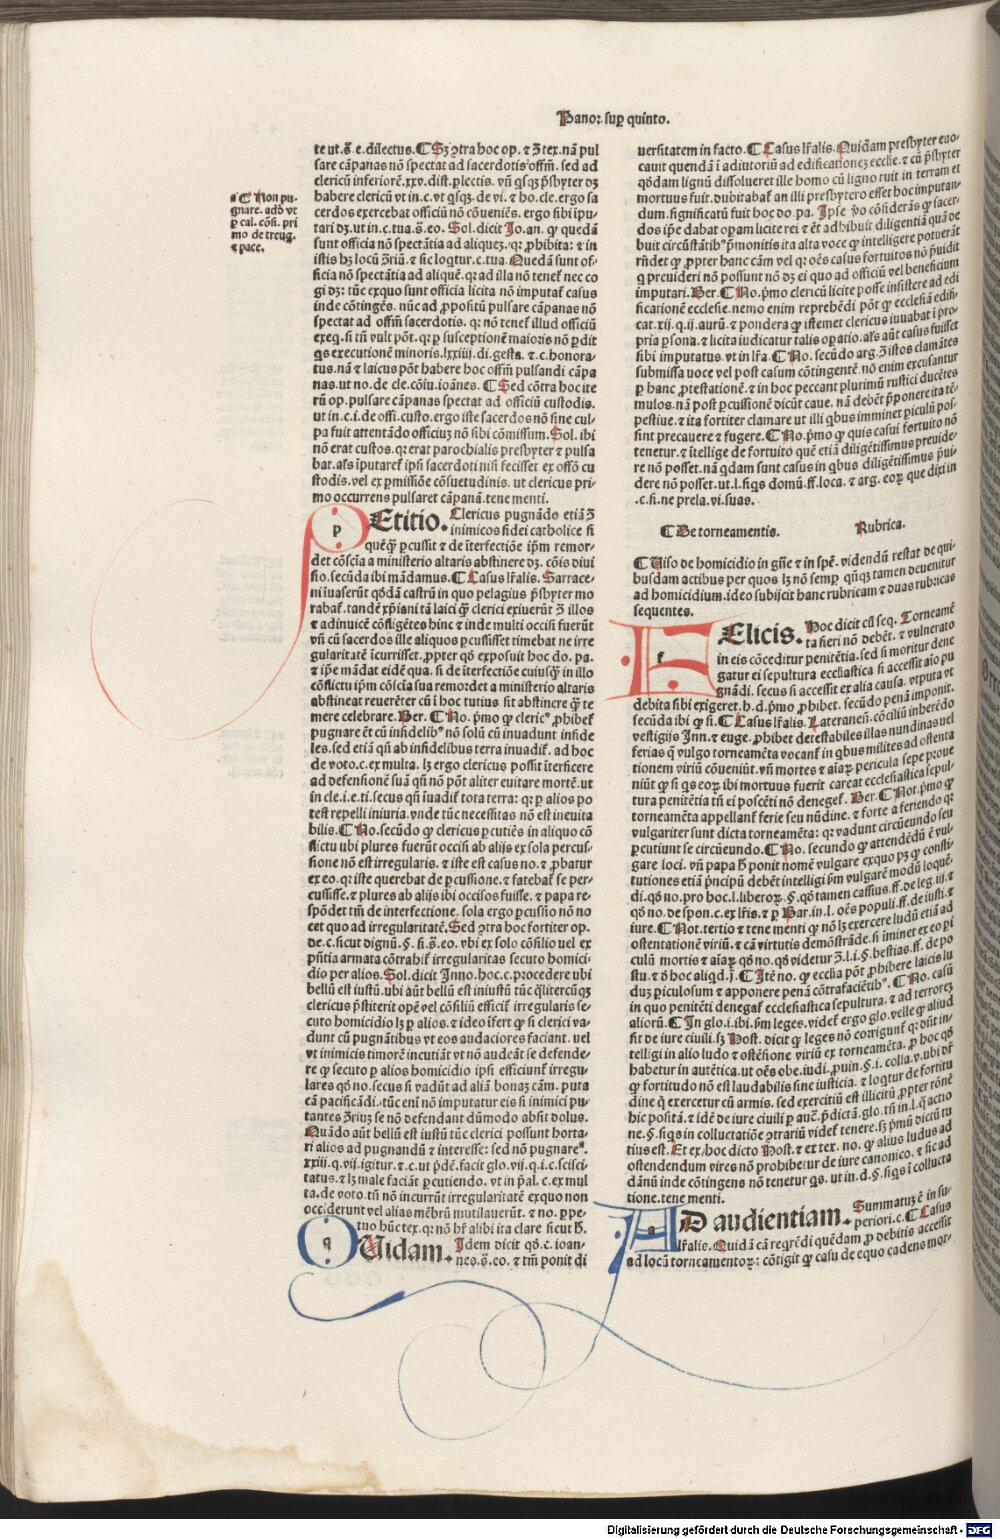 Panor. sup quinto.
te ut. s̄. e. dilectus. ¶ Sz ꝯtra hoc op. ⁊ ꝫ tex. nā pul
sare cāpanas nō spectat ad sacerdotis offm̄. sed ad
clericū inferiorē. xxv. dist. plectis. vn̄ qsqꝫ p̄sbyter dꝫ
habere clericū vt in. c. vt qsqꝫ. de vi. ⁊ ho. cle. ergo sa
cerdos exercebat officiū nō cōueniēs. ergo sibi īpu-
tari dꝫ. ut in. c. tua. s̄. eo. Sol. dicit Jo. an. ꝙ quedā
sunt officia nō spectātia ad aliqueꝫ. qꝛ ꝓhibita: ⁊ in
istis hꝫ locū ꝯriū. ⁊ sic loqtur. c. tua. Quedā sunt of-
ficia nō spectātia ad aliquē. qꝛ ad illa nō tenet̄ nec co
gi dꝫ: tūc exquo sunt officia licita nō imputat̄ casus
inde cōtingēs. nūc ad ꝓpositū pulsare cāpanas nō
spectat ad offm̄ sacerdotis. qꝛ nō tenet̄ illud officiū
exeq. si tn̄ vult pōt. qꝛ ꝑ susceptionē maioris nō ꝑdit
qs executionē minoris. lxxiiij. di. gesta. ⁊ c. honora-
tus. nā ⁊ laicus pōt habere hoc offm̄ pulsandi cāpa
nas. ut no. de cle. cōiu. ioānes. ¶ Sed cōtra hoc ite
rū op. pulsare cāpanas spectat ad officiū custodis.
ut in. c. i. de offi. custo. ergo iste sacerdos nō sine cul-
pa fuit attentādo officiuꝫ nō sibi cōmissum. Sol. ibi
nō erat custos. qꝛ erat parochialis presbyter ⁊ pulsa
bat. al̄s īputaret̄ ipsi sacerdoti nisi fecisset ex offō cu
stodis. vel ex ꝑmissiōe cōsuetudinis. ut clericus pri-
mo occurrens pulsaret cāpanā. tene menti.
a ¶ Non pu-
gnare. add̄ vt
ꝑ cal. cōsi. pri
mo de treug.
⁊ pace.
p
Etitio. Clericus pugnādo etiā ꝫ
inimicos fidei catholice si
quēqꝫ ꝑcussit ⁊ de īterfectiōe ip̄m remor-
det cōscīa a ministerio altaris abstinere dꝫ. cōis diui
sio. secūda ibi mādamus. ¶ Casus lr̄alis. Sarrace-
ni īuaserūt qōdā castrū in quo pelagius p̄sbyter mo
rabat̄. tandē xp̄iani tā laici qꝫ clerici exiuerūt ꝫ illos
⁊ adinuicē cōfligētes hinc ⁊ inde multi occisi fuerūt
vn̄ cū sacerdos ille aliquos ꝑcussisset timebat ne irre
gularitatē īcurrisset. ꝓpter qd̄ exposuit hoc do. pa.
⁊ ip̄e mādat eidē qua. si de īterfectiōe cuiusqꝫ in illo
cōflictu ip̄m cōscīa sua remordet a ministerio altaris
abstineat reuerēter cū ī hoc tutius sit abstinere qꝫ te
mere celebrare. Ber. ¶ No. pmo ꝙ cleric⁹ ꝓhibet̄
pugnare ēt cū infidelib⁹ nō solū cū inuadunt infide
les. sed etiā qn̄ ab infidelibus terra inuadit̄. ad hoc
de voto. c. ex multa. lꝫ ergo clericus possit īterficere
ad defensionē suā qn̄ nō pōt aliter euitare mortē. ut
in cle. i. e. ti. secus qn̄ īuadit̄ tota terra: qꝛ ꝑ alios po
test repelli iniuria. vnde tūc necessitas nō est ineuita
bilis. ¶ No. secūdo ꝙ clericus ꝑcutiēs in aliquo cō
flictu ubi plures fuerūt occisi ab alijs ex sola percus-
sione nō est irregularis. ⁊ iste est casus no. ⁊ ꝓbatur
ex eo. qꝛ iste querebat de ꝑcussione. ⁊ fatebat̄ se per-
cussisse. ⁊ plures ab alijs ibi occisos fuisse. ⁊ papa re-
spōdet tm̄ de interfectione. sola ergo ꝑcussio nō no
cet quo ad irregularitatē. Sed ꝯtra hoc fortiter op.
de. c. sicut dignū. §. fi. s̄. eo. vbi ex solo cōsilio uel ex
p̄ntia armata cōtrahit̄ irregularitas secuto homici-
dio per alios. Sol. dicit Inno. hoc. c. procedere ubi
bellū est iustū. ubi aūt bellū est iniustū tūc qlitercūqꝫ
clericus p̄stiterit opē vel cōsiliū efficit̄ irregularis se-
cuto homicidio lꝫ ꝑ alios. ⁊ ideo īfert ꝙ si clerici va-
dunt cū pugnātibus vt eos audaciores faciant. uel
vt inimicis timorē incutiāt vt nō audeāt se defende-
re ꝙ secuto ꝑ alios homicidio ipsi efficiunt̄ irregu-
lares qd̄ no. secus si vadūt ad aliā bonaꝫ cām. puta
cā pacificādi. tūc eni nō imputatur eis si inimici pu-
tantes ꝯriuꝫ se nō defendant dūmodo absit dolus.
Quādo aūt bellū est iustū tūc clerici possunt horta-
ri alios ad pugnandū ⁊ interesse: sed nō pugnareᵃ.
xxiij. q. vij. igitur. ⁊ c. ut pdē. facit glo. vij. q. i. c. scisci-
tatus. ⁊ lꝫ male faciāt ꝑcutiendo. vt in p̄al. c. ex mul
ta. de voto. tn̄ nō incurrūt irregularitatē exquo non
occiderunt vel alias mēbrū mutilauerūt. ⁊ no. ꝑpe-
tuo hūc tex. qꝛ nō hr̄ alibi ita clare sicut h̄.
q
Uidam. Idem dicit qd̄. c. ioan-
nes. s̄. eo. ⁊ tm̄ ponit di
uersitatem in facto. ¶ Casus lr̄alis. Quidam presbyter euo-
cauit quendā ī adiutoriū ad edificationeꝫ ecclie. ⁊ cū p̄sbyter
qōdam lignū dissolueret ille homo cū ligno ruit in terram et
mortuus fuit. dubitabat̄ an illi presbytero esset hoc imputan-
dum. significatū fuit hoc do. pa. Ipse v̄o cōsiderās ꝙ sacer-
dos ip̄e dabat operā licite rei ⁊ ēt adhibuit diligentiā quā de
buit circūstātib⁹ p̄monitis ita alta voce ꝙ intelligere potuerāt
rn̄det ꝙ ꝓpter hanc cām vel qꝛ oēs casus fortuitos nō p̄uidit
q preuideri nō possunt nō dꝫ ei quo ad officiū vel beneficium
imputari. Ber. ¶ No. pmo clericū licite posse insistere ad edi
ficationē ecclesie. nemo enim reprehēdi pōt ꝙ ecclesiā edifi-
cat. xij. q. ij. aurū. ⁊ pondera ꝙ istemet clericus iuuabat ī pro-
pria ꝑsona. ⁊ licita iudicatur talis oꝑatio. al̄s aūt casus fuisset
sibi imputatus. vt in lr̄a. ¶ No. secūdo arg. ꝫ istos clamātes
submissa uoce vel post casum cōtingentē. nō enim excusantur
ꝑ hanc ꝓtestationē. ⁊ in hoc peccant plurimū rustici ducētes
mulos. nā post ꝑcussionē dicūt caue. nā debēt p̄ponere ita tē-
pestiue. ⁊ ita fortiter clamare ut illi qbus imminet piculū pos-
sint precauere ⁊ fugere. ¶ No. pmo ꝙ quis casui fortuito nō
tenetur. ⁊ ītellige de fortuito quē etiā diligētissimus preuide-
re nō posset. nā qdam sunt casus in qbus diligētissimus p̄ui-
dere nō posset. ut. l. siqs domū. ff. loca. ⁊ arg. eoꝝ que dixi in
.c. fi. ne prela. vi. suas.
¶ De torneamentis. Rubrica.
¶ Uiso de homicidio in gn̄e ⁊ in spē. videndū restat de qui-
busdam actibus per quos lꝫ nō semp̄ qn̄qꝫ tamen deuenitur
ad homicidium. ideo subijcit hanc rubricam ⁊ duas rubricas
sequentes.
f
Elicis. Hoc dicit cū seq. Torneamē
ta fieri nō debēt. ⁊ vulnerato
in eis cōceditur penitētia. sed si moritur dene
gatur ei sepultura ecclīastica si accessit aīo pu
gnādi. secus si accessit ex alia causa. vtputa vt
debita sibi exigeret. h. d. p̄mo ꝓhibet. secūdo penā imponit.
secūda ibi ꝙ si. ¶ Casus lr̄alis. Lateranen̄. cōciliū inherēdo
vestigijs Inn. ⁊ euge. ꝓhibet detestabiles illas nundinas uel
ferias q̄ vulgo torneamēta vocant̄ in qbus milites ad ostenta
tionem viriū cōueniūt. vn̄ mortes ⁊ aīaꝝ pericula sepe proue
niūt ꝙ si qs eoꝝ ibi mortuus fuerit careat ecclesiastica sepul-
tura penitētia tn̄ ei poscēti nō deneget̄. Ber. ¶ Not. pmo ꝙ
torneamēta appellant̄ ferie seu nūdine. ⁊ forte a feriendo qꝛ
vulgariter sunt dicta torneamēta: qꝛ vadunt circūeundo seu
ꝑcutiunt se circūeundo. ¶ No. secundo ꝙ attendēdū ē vul-
gare loci. vn̄ papa h̄ ponit nomē vulgare exquo pꝫ ꝙ consti-
tutiones etiā p̄ncipū debēt intelligi s̄m vulgarē modū loquē-
di. qd̄ no. pro hoc. l. liberoꝝ. §. qd̄ tamen cassius. ff. de leg. iij. ⁊
qd̄ no. de spon. c. ex lr̄is. ⁊ ꝑ Bar. in. l. oēs populi. ff. de iusti. ⁊
iure. ¶ Not. tertio ⁊ tene menti ꝙ nō lꝫ exercere ludū etiā ad
ostentationē viriū. ⁊ cā virtutis demōstrāde. si imīnet ex eo pi
culū mortis ⁊ aīaꝝ qd̄ no. qd̄ videtur ꝫ. l. i. §. bestias. ff. de po
stu. ⁊ d̄ hoc aliqd. j̄. ¶ Itē no. ꝙ ecclia pōt ꝓhibere laicis lu
duꝫ piculosum ⁊ apponere penā cōtrafaciētib⁹. ¶ No. casū
in quo penitēti denegat̄ ecclesiastica sepultura. ⁊ ad terroreꝫ
aliorū. ¶ In glo. i. ibi. s̄m leges. videt̄ ergo glo. velle ꝙ aliud
sit de iure ciuili. sꝫ Host. dicit ꝙ leges nō corrigunt̄ qꝛ dn̄t in-
telligi in alio ludo ⁊ ostēsione viriū ex torneamēta. ꝓ hoc qd̄
habetur in autētica. ut oēs obe. iudi. ꝓuin. §. i. colla. v. ubi dr̄
ꝙ fortitudo nō est laudabilis sine iusticia. ⁊ loqtur de fortitu
dine q̄ exercetur cū armis. sed exercitiū est illicitū ꝓpter rōnē
hic positā. ⁊ idē de iure ciuili ꝑ auc̄. p̄dictā. glo. tn̄ in. l. q̄ actio
ne. §. siqs in colluctatiōe ꝯtrariū videt̄ tenere. sꝫ pmū dictū tu
tius est. Et ex hoc dicto Host. ⁊ ex tex. no. ꝙ alius ludus ad
ostendendum vires nō prohibetur de iure canonico. ⁊ sic ad
dānū inde cōtingens nō tenetur qs. ut in. d. §. siqs ī collucta
tione. tene menti.
a
D audientiam. Summatuꝫ ē in su-
periori. c. ¶ Casus
lr̄alis. Quidā cā regrēdi quēdam ꝓ debitis accessit
ad locū torneamentoꝝ: cōtigit ꝙ casu de equo cadens mor-
Digitalisierung gefördert durch die Deutsche Forschungsgemeinschaft - DFG